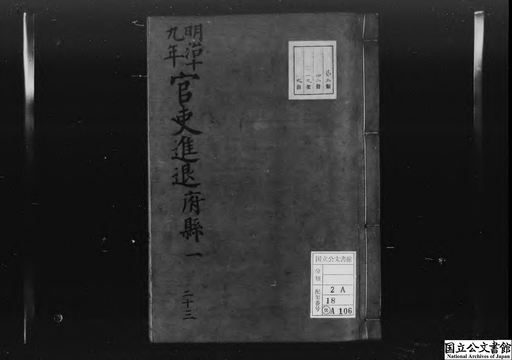 明治十
九年
官吏進退府縣一
二十三
国立公文書館
分類
配架番号
2 A
18
A 106
国立公文書館
National Archives of Japan